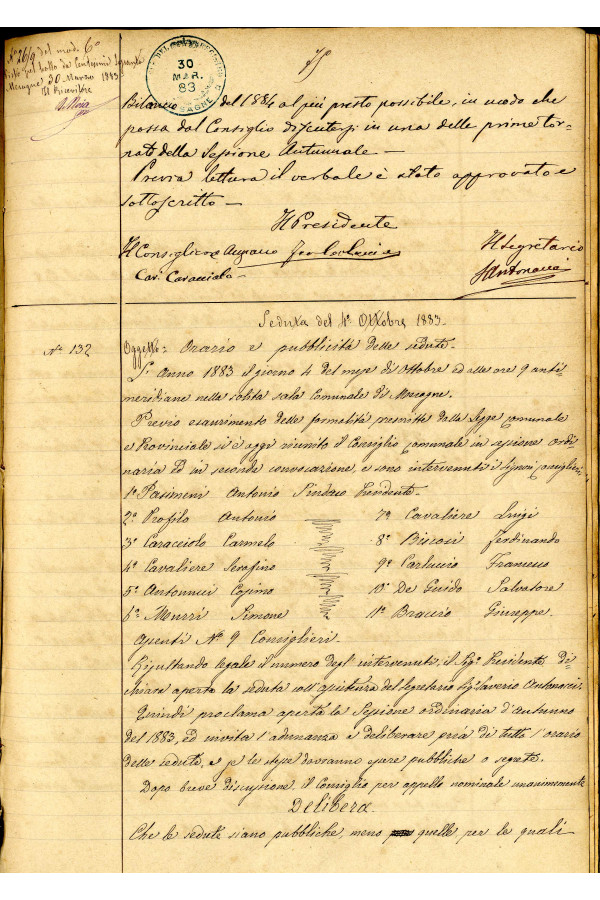 N° 2619 del mod. 6°
Visto pel bollo da Centesimi
Mesagne 30 Marzo 1883
Il Ricevitore
30
MAR.
83
MESAGNE
Bilancio del 1884 al più presto possibile, in modo che
possa dal Consiglio discutersi in una delle prime tor-
nate della Sessione Autunnale —
Previa lettura il verbale è stato approvato e
sottoscritto —
Il Presidente
Il Consigliere Anziano
Il Segretario
Cav. Caracciolo
SAntonucci
Seduta del 4 Ottobre 1883.
N° 132
Oggetto: Orario e pubblicità delle sedute.
L'Anno 1883 il giorno 4 del mese di Ottobre ed alle ore 9 anti-
meridiane nella solita sala Comunale di Mesagne.
Previo esaurimento delle formalità prescritte dalla Legge Comunale
e Provinciale si è oggi riunito il Consiglio Comunale in sessione ordi-
naria ed in seconda convocazione, e sono intervenuti i Signori Consiglieri
1° Pasimeni Antonio Sindaco Presidente.
2° Profilo Antonio 7° Cavaliere Luigi
3° Caracciolo Carmelo 8° Ferdinando
4° Cavaliere Serafino 9° Carluccio Francesco
5° Antonucci Cosimo 10° De Guido Salvatore
6° Murri Simone 11° Braccio Giuseppe.
Assenti N° 9 Consiglieri.
Risultando legale il numero degl'intervenuti, il Sig.r Presidente di-
chiara aperta la seduta coll'assistenza del Segretario Sig. Saverio Antonucci.
Quindi proclama aperta la Sessione ordinaria d'Autunno
del 1883, ed invita l'adunanza a deliberare pria di tutto l'orario
delle sedute, e se le stesse dovranno essere pubbliche o segrete.
Dopo breve discussione il Consiglio per appello nominale unanimemente
Delibera
Che le sedute siano pubbliche, meno quelle, per le quali